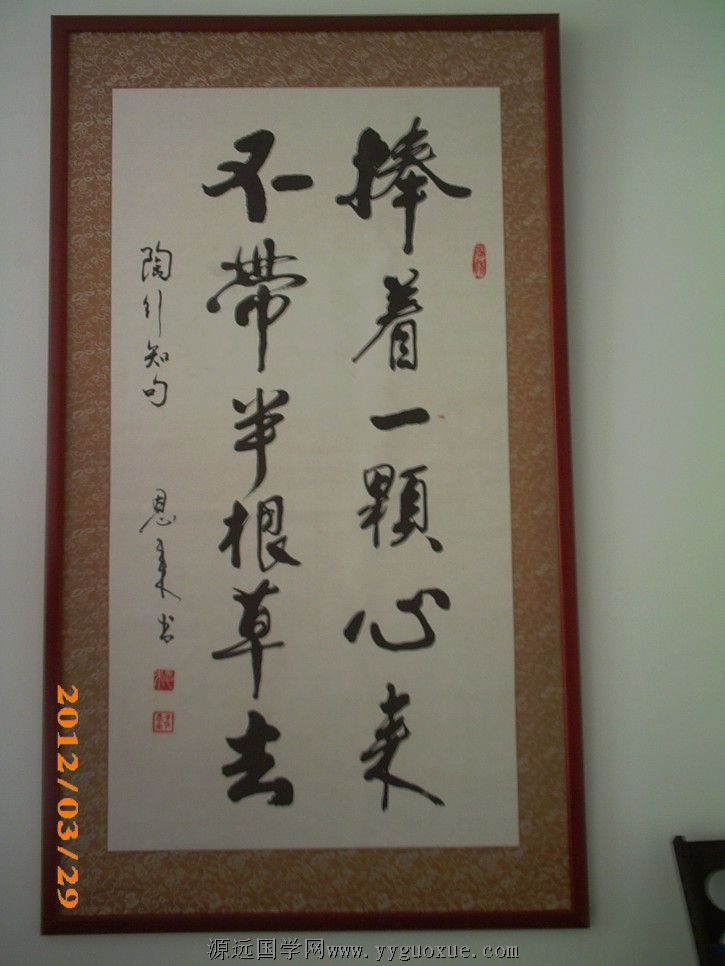 捧着一顆心来
不帶半根草去
陶行知句
恩来书
2012/03/29
源远国学网www.yyguoxue.com